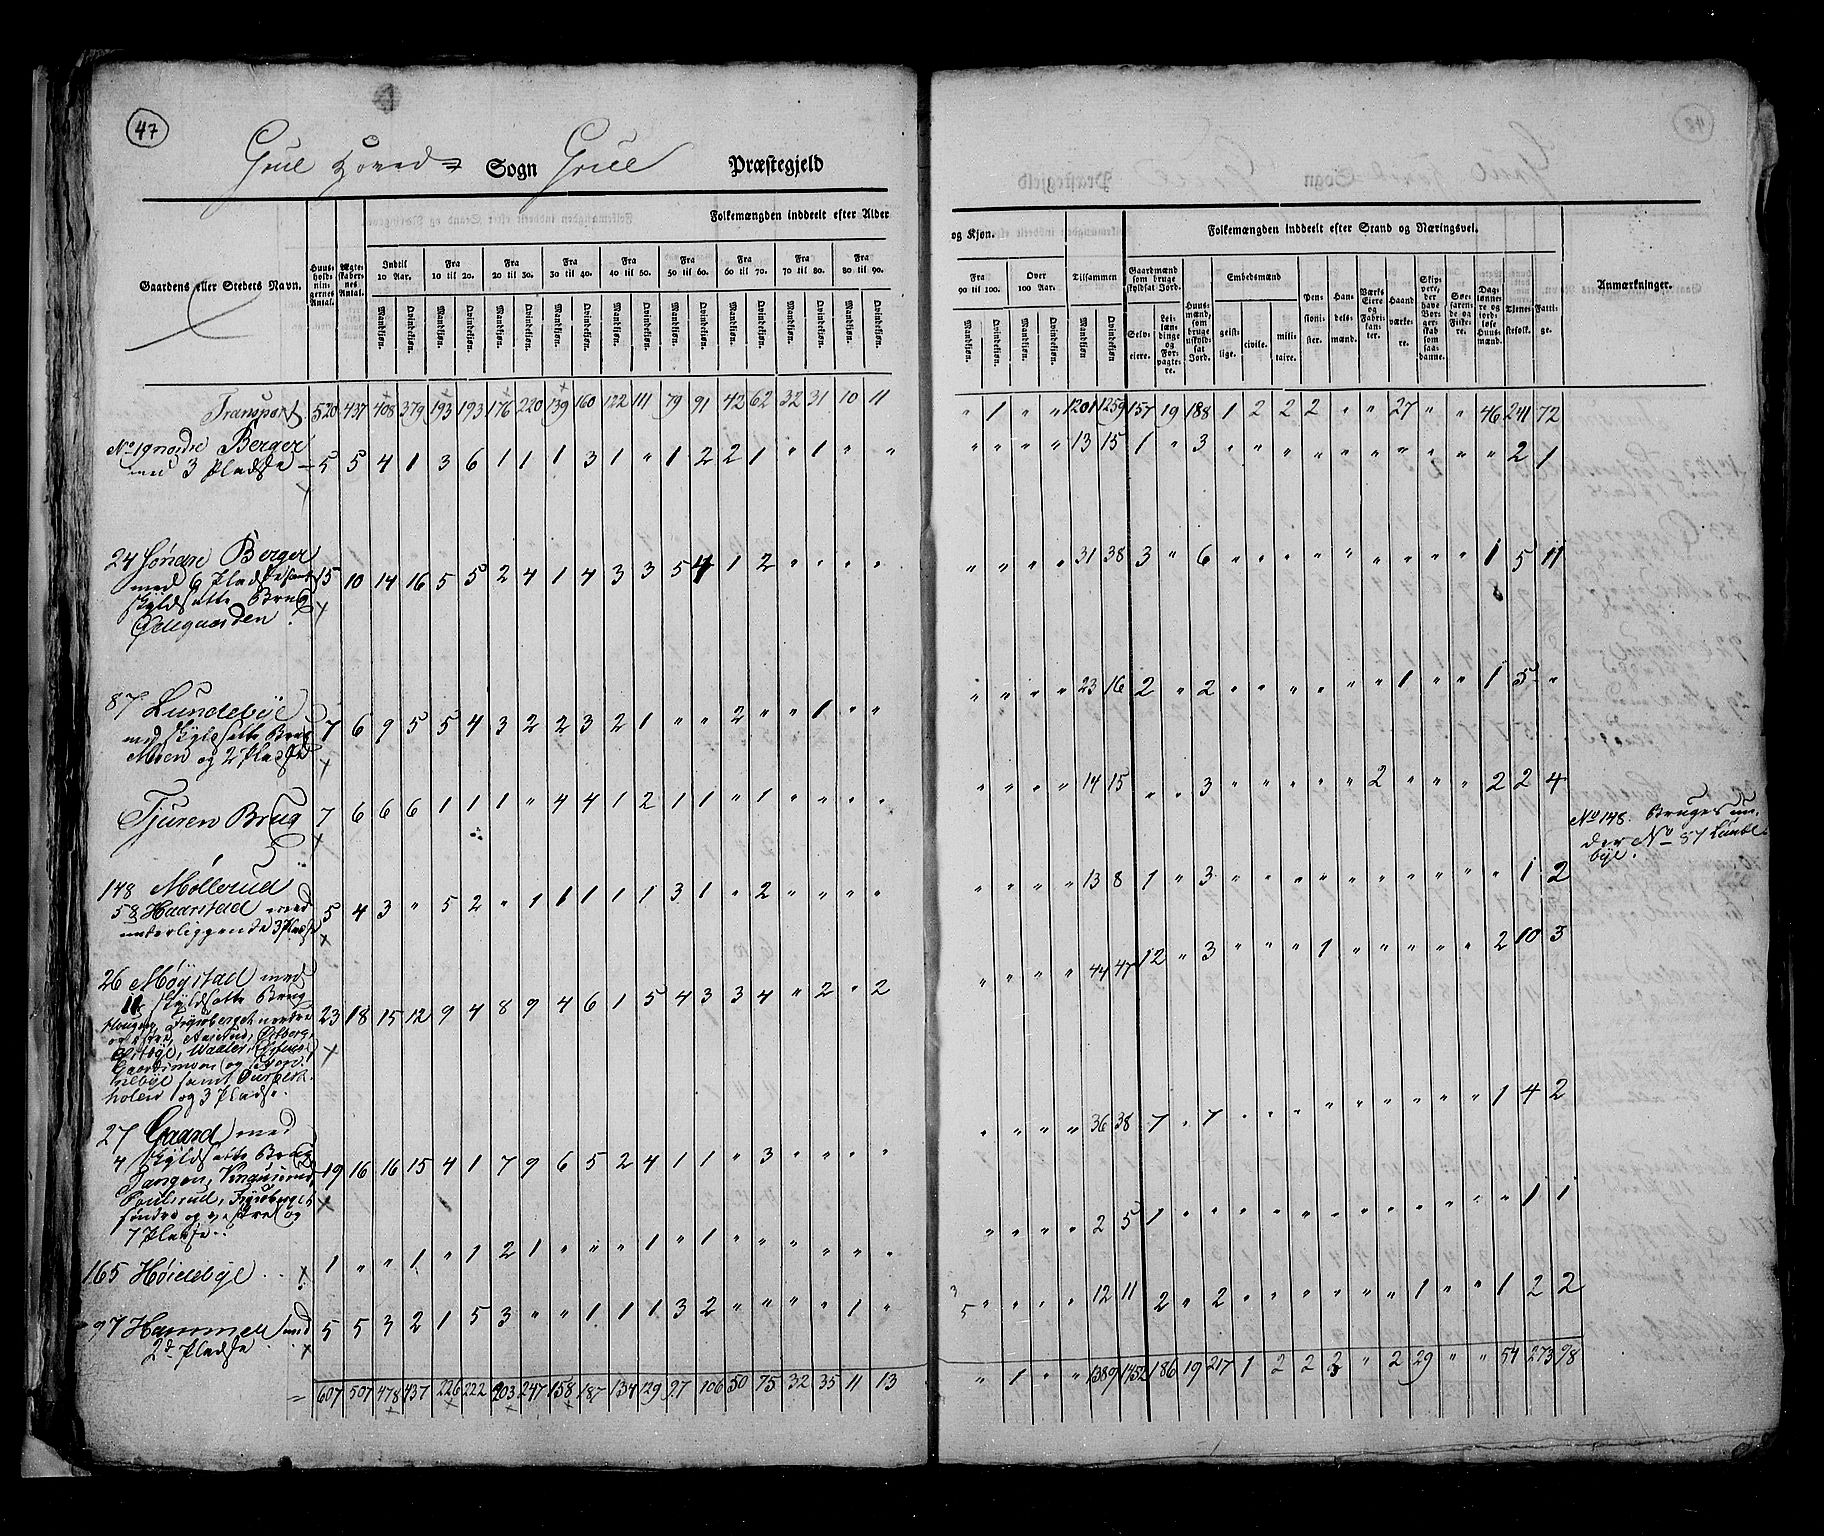 47
Grue Hoved Sogn Grue Præstegjeld
Folkemængden inddeelt efter Alder
og Kjøn.
Folkemængden inddeelt efter Stand og Næringsvei.
Gaardens eller Stedets Navn.
Huus-holdnin-gernes Antal.
Ægte-skaber-nes Antal.
Indtil 10 Aar.
Fra 10 til 20.
Fra 20 til 30.
Fra 30 til 40.
Fra 40 til 50.
Fra 50 til 60.
Fra 60 til 70.
Fra 70 til 80.
Fra 80 til 90.
Fra 90 til 100.
Over 100 Aar.
Tilsammen
Mandkjøn. Qvindekjøn.
Gaardmænd som bruge skyldsat Jord.
Selv-eiere.
Lei-lændinge og For-pagte-re.
Huus-mænd, som bruge uskyld-sat Jord.
Embedsmænd
geist-lige.
civile.
mili-taire.
Pen-sioni-ster.
Han-dels-mænd.
Værks Eiere og Fabri-kan-ter.
Haand-værke-re.
Skip-pere, der have Bor-ger-skab som saa-danne.
Søe-farende og Fiske-re.
Dag-lønne-re og jord-løse Huus-mænd.
Tjene-stefolk.
Fatti-ge.
Anmærkninger.
Transport 520 437 408 379 193 193 176 220 139 160 122 111 79 91 42 62 32 31 10 11 " 1 " " 1201 1259 157 19 188 1 2 2 2 " " 27 " " 46 241 72
No 19 nordre Berger
med 3 Pladse 5 5 4 1 3 6 1 1 1 3 1 " 1 2 2 1 " 1 " " " " " " 13 15 1 " 3 " " " " " " " " " " 2 1
24 Søndre Berger
med 6 Pladse samt 15 10 14 16 5 5 2 4 1 4 3 3 5 4 1 2 " " " " " " " " 31 38 3 " 6 " " " " " " " " " 1 5 11
skyldsatte Brug
Ødegaarden
87 Lundebye
med skyldsatte Brug 7 6 9 5 5 4 3 2 2 3 2 1 " " 2 " " 1 " " " " " " 23 16 2 " 2 " " " " " " 1 " " 1 5 "
Moen og 2 Pladse
Tjuren Brug 7 6 6 6 1 1 1 " 4 4 1 2 1 1 " 1 " " " " " " " " 14 15 " " 3 " " " " " 2 " " " 2 2 4
No 148. Bruges un-
der No 87 Lunde
bye.
148 Møllerud
58 Haarstad med
underliggende 3 Pladse 5 4 3 " 5 2 " 1 1 1 1 1 3 1 " 2 " " " " " " " " 13 8 1 " 3 " " " " " " " " " " 1 2
26 Møystad med
11 skyldsatte Brug
23 18 15 12 9 4 8 9 4 6 1 5 4 3 3 4 " 2 " 2 " " " " 44 47 12 " 3 " " " 1 " " " " " 2 10 3
holen og 3 Pladse.
27 Gaard med
4 skyldsatte Brug
19 16 16 15 4 1 7 9 6 5 2 4 1 1 " 3 " " " " " " " " 36 38 7 " 7 " " " " " " " " " 1 4 2
søndre og vestre og
7 Pladse.
165 Høiebye 1 " " 1 " 1 2 1 " " " 1 " 1 " " " " " " " " " " 2 5 1 " " " " " " " " " " " " 1 1
97 Hammer med 5 5 3 2 1 5 3 " " 1 1 1 3 2 " " " " 1 " " " " " 12 11 2 " 2 " " " " " " 1 " " 1 2 2
2de Pladse
607 507 478 437 226 222 203 247 158 187 134 129 97 106 50 75 32 35 11 13 " 1 " " 1389 1452 186 19 217 1 2 2 3 " 2 29 " " 54 273 98